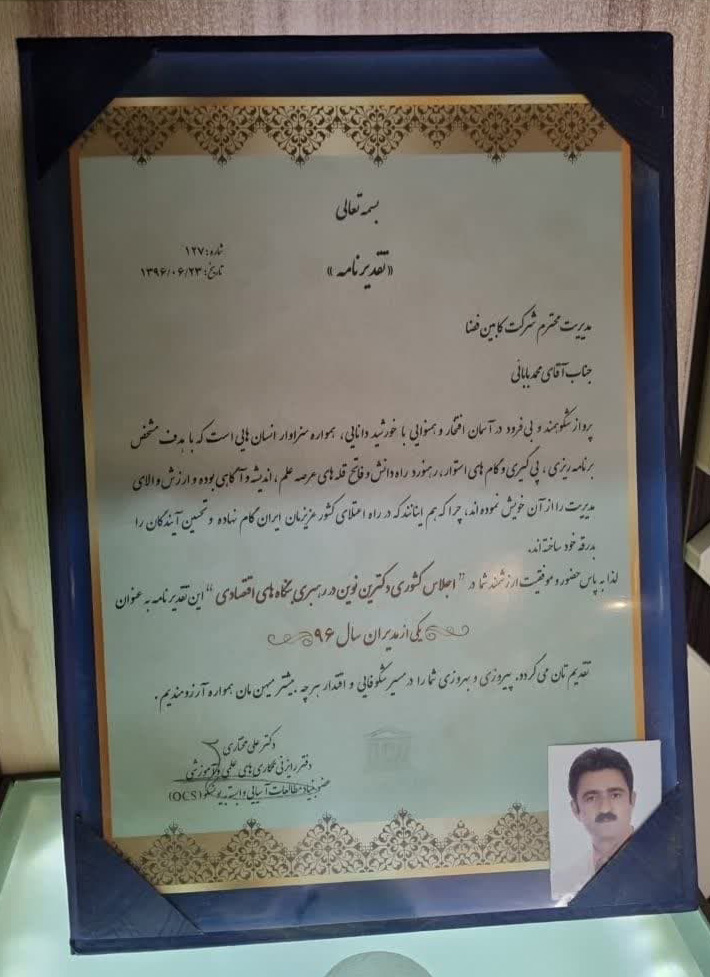 بسمه تعالی
شماره: ۱۲۷
تاریخ: ۱۳۹۶/۰۶/۲۳
«تقدیرنامه»
مدیریت محترم شرکت کابین فضا
جناب آقای محمد بابائی
پرواز شکوهمند و بی‌فرود در آسمان افتخار و همنوایی با خورشید دانایی، همواره سزاوار انسان هایی است که با هدف مشخص
برنامه ریزی، پی گیری و گام های استوار، رهنورد راه دانش و فاتح قله های عرصه علم، اندیشه و آگاهی بوده و ارزش والای
مدیریت را از آن خویش نموده اند، چرا که هم اینانند که در راه اعتلای کشور عزیزمان ایران گام نهاده و تحسین آیندگان را
بدرقه خود ساخته اند.
لذا به پاس حضور و موفقیت ارزشمند شما در "اجلاس کشوری دکترین نوین در رهبری بنگاه های اقتصادی" این تقدیرنامه به عنوان
یکی از مدیران سال ۹۶
تقدیم تان می گردد. پیروزی و بهروزی شما را در مسیر شکوفایی و اقتدار هر چه بیشتر میهن مان همواره آرزومندیم.
دکتر علی مختاری
دفتر رایزنی همکاری های علمی و آموزشی
عضو بنیاد مطالعات آسیایی وابسته به یونسکو (OCS)